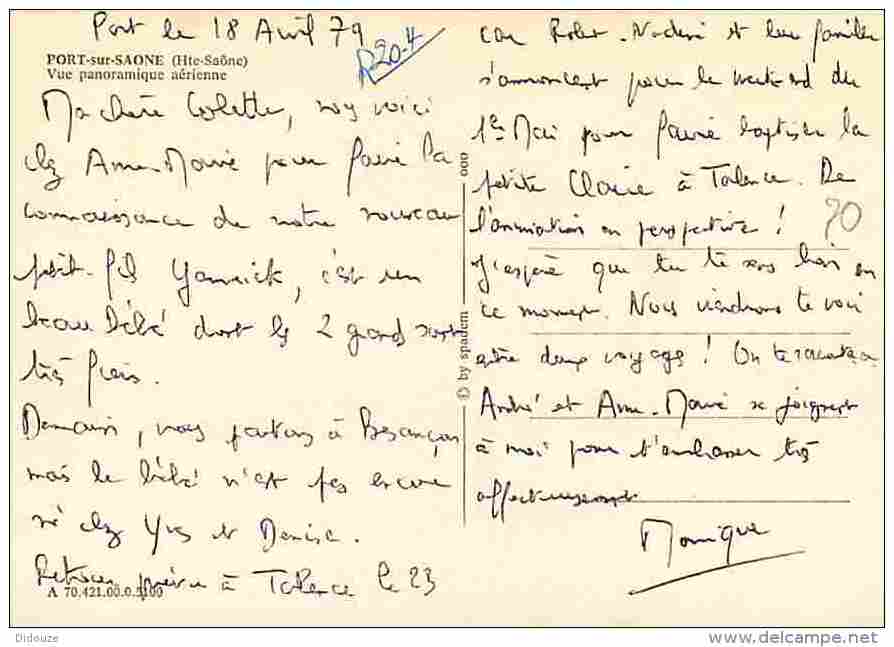 Port le 18 Avril 79
R 20-4
PORT-sur-SAONE (Hte-Saône)
Vue panoramique aérienne
Ma chère Colette, nous voici
chez Anne-Marie pour faire la
connaissance de notre nouveau
petit-fils Yannick, c'est un
beau bébé dont les 2 grands sont
très fiers.
Demain, nous partons à Besançon
mais le bébé n'est pas encore
né chez Yves et Denise.
Retour prévu à Talence le 23
A 70.421.00.0.5100
© by spadem ooo
car Robert-Nadine et leur famille
s'annoncent pour le week end du
1er Mai pour faire baptiser la
petite Claire à Talence. De
l'animation en perspective !
70
J'espère que tu te sens bien en
ce moment. Nous viendrons te voir
entre deux voyages ! On te racontera
André et Anne-Marie se joignent
à moi pour t'embrasser très
affectueusement
Monique
Didouze
www.delcampe.net